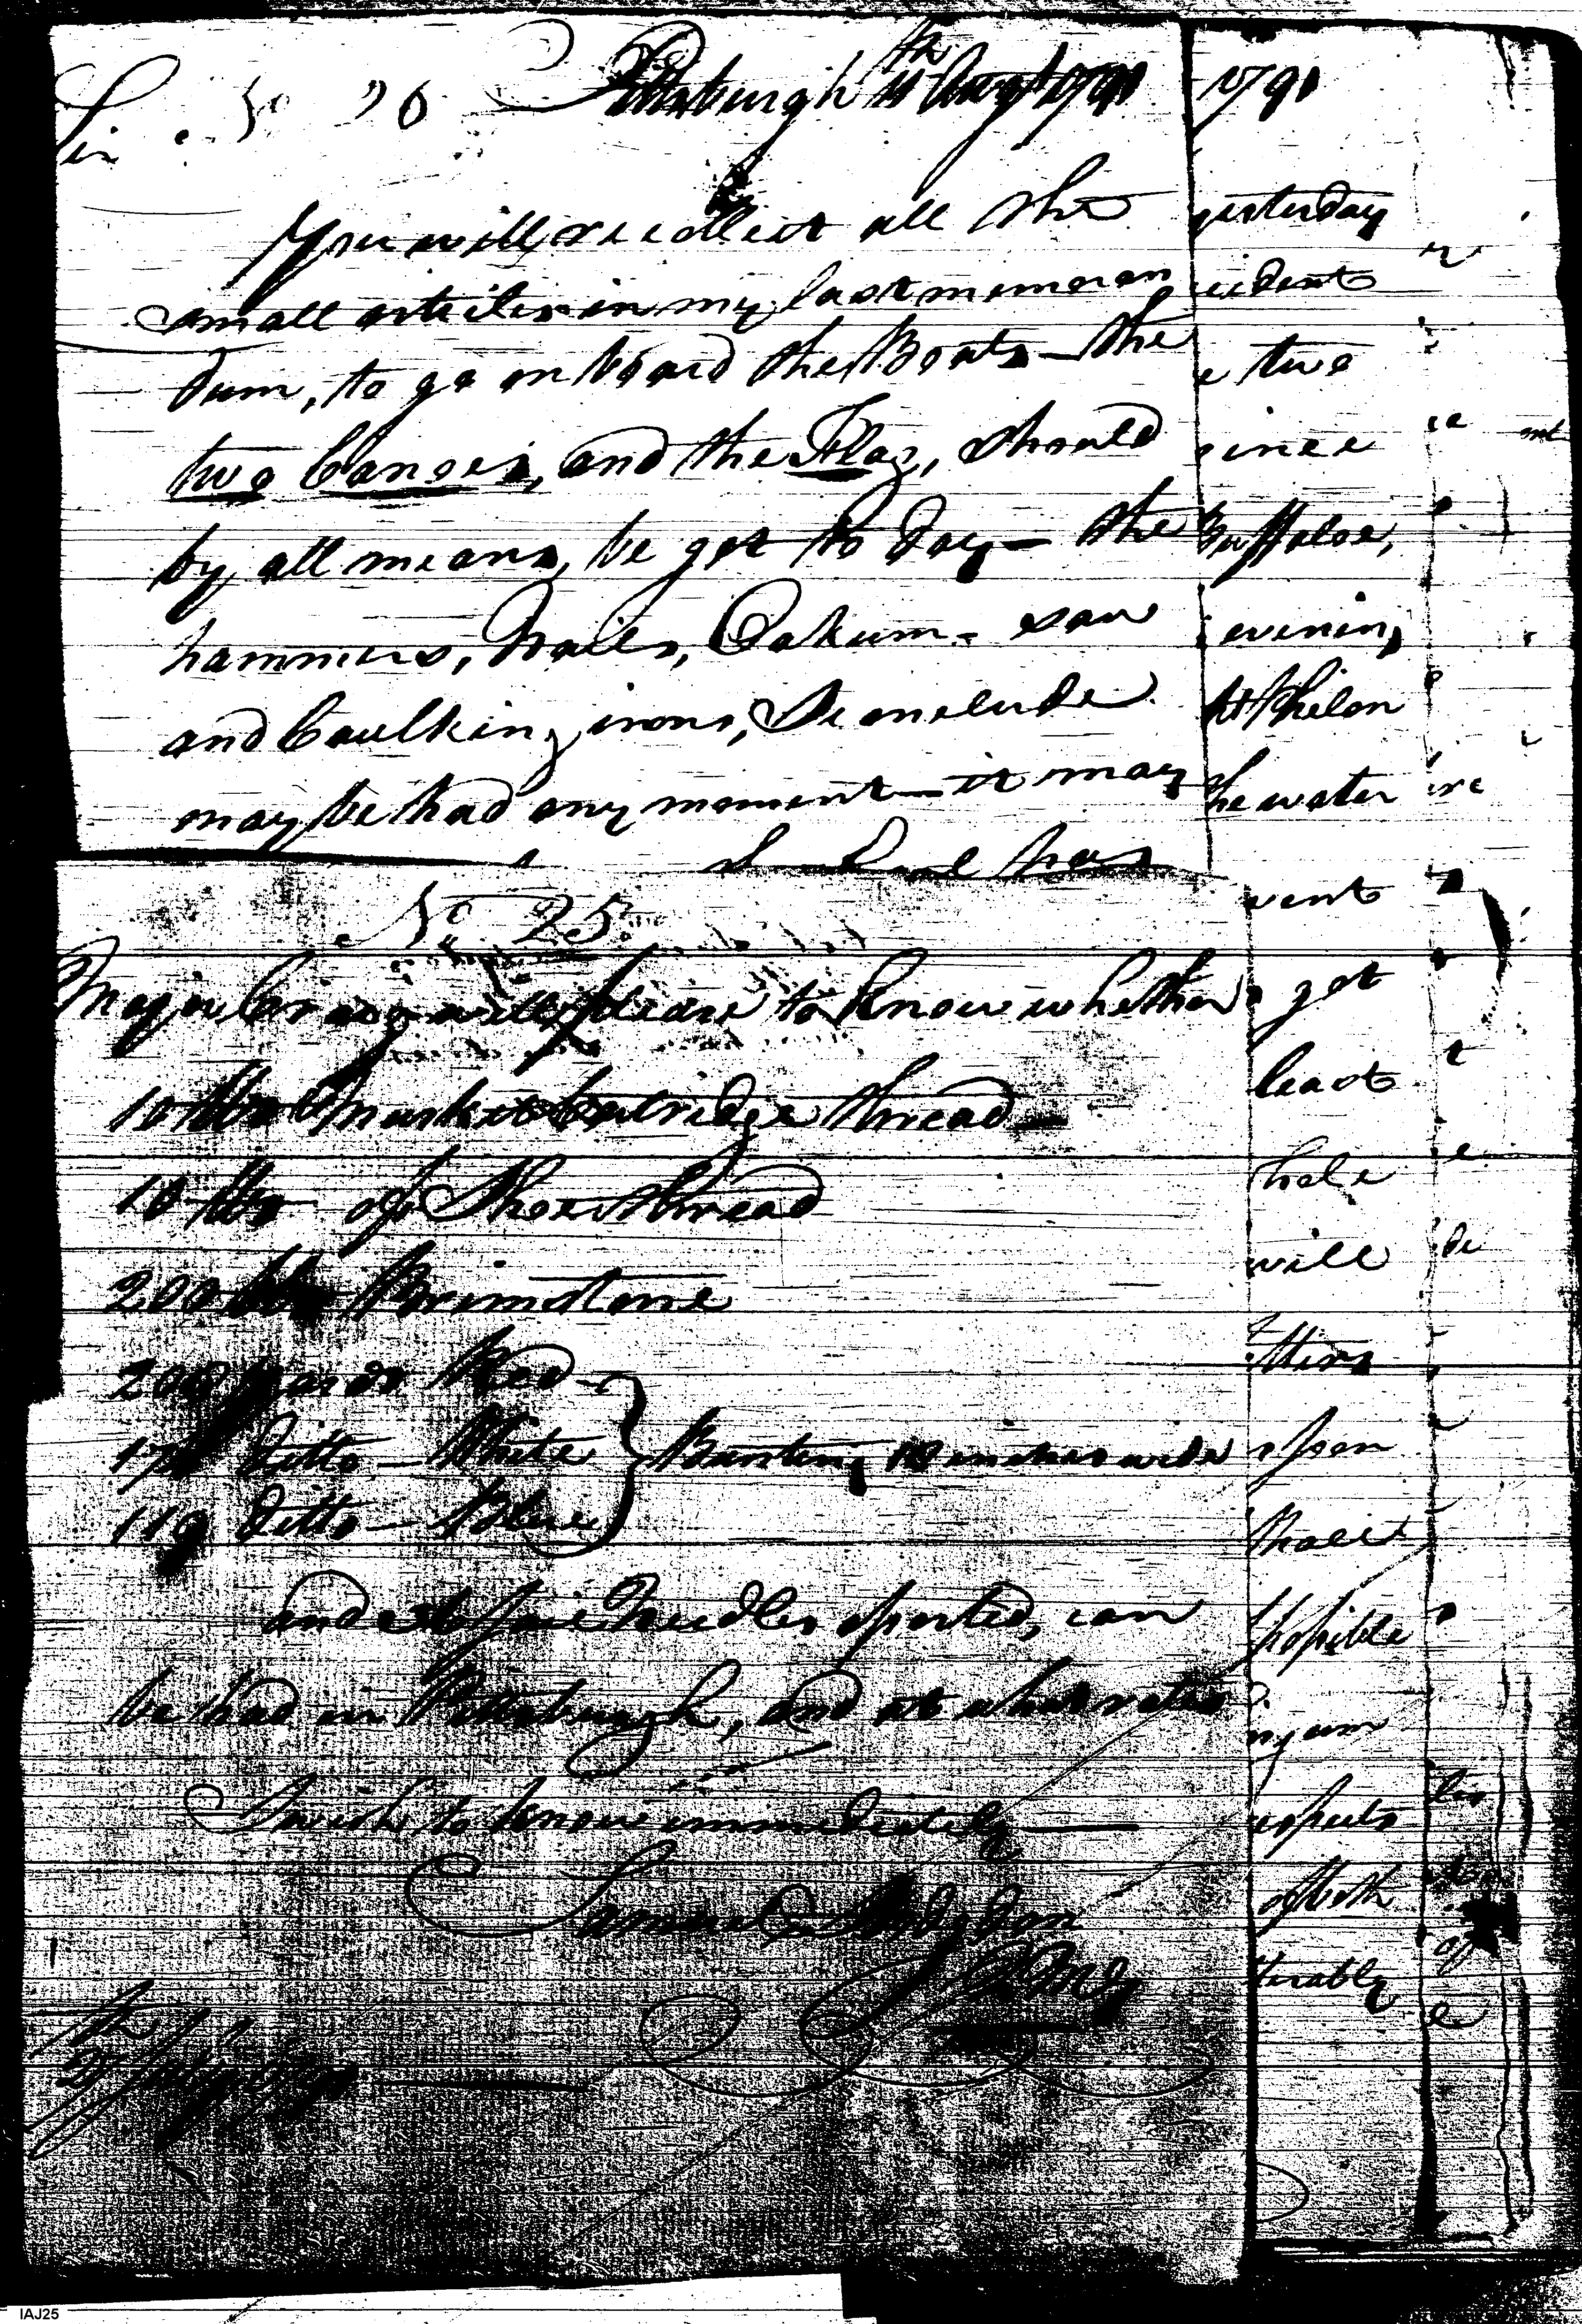 Sir. No 26 Pittsburgh 11th Augt 1791
You will recollect all the
small articles in my last memoran
dum, to go on board the Boats — the
two Canoes, and the Flag, should
by all means, be got to day — the
hammers, Nails, Oakum - saw
and Caulking irons, I conclude
may be had any moment — it may
No 25
Major Craig will please to know whether
10 lbs Musket Cartridge thread —
10 lbs of Shoe thread
200 lbs Brimstone
200 yards Red
170 ditto — White } Bunting 18 inches wide
119 ditto — Blue
and Needles sorted, can
be had in Pittsburgh, and at what rates
I wish to know immediately —
Samuel Hodgdon
QMG
27th July 1791
1791
yesterday
cident
e two
since
Buffaloe,
evening
Phelon
he water
went
got
least
hole
will
tters
open
possible
ny arm
espects
of both
terably
ere
de
of